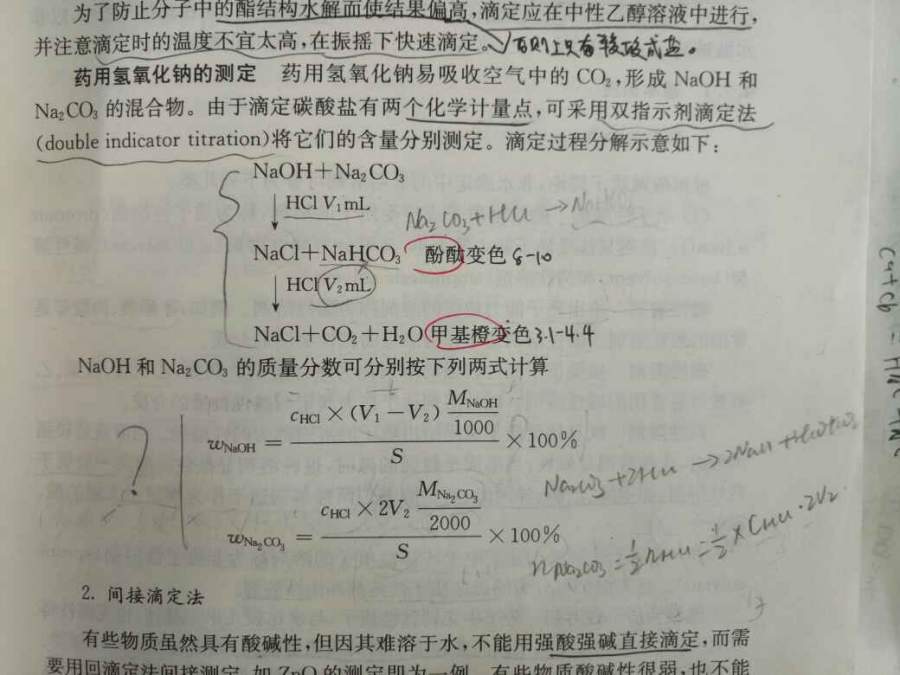 为了防止分子中的酯结构水解而使结果偏高,滴定应在中性乙醇溶液中进行,
并注意滴定时的温度不宜太高,在振摇下快速滴定。否则上只有羧酸成盐。
药用氢氧化钠的测定 药用氢氧化钠易吸收空气中的 CO₂,形成 NaOH 和
Na₂CO₃ 的混合物。由于滴定碳酸盐有两个化学计量点,可采用双指示剂滴定法
(double indicator titration)将它们的含量分别测定。滴定过程分解示意如下:
NaOH+Na₂CO₃
↓ HCl V₁ mL
Na₂CO₃+HCl → NaHCO₃
NaCl+NaHCO₃ 酚酞变色 8-10
↓ HCl V₂ mL
NaCl+CO₂+H₂O 甲基橙变色 3.1-4.4
NaOH 和 Na₂CO₃ 的质量分数可分别按下列两式计算
w_NaOH = (c_HCl × (V₁−V₂) M_NaOH/1000)/S ×100%
Na₂CO₃+2HCl → 2NaCl+H₂O+CO₂
?
w_Na₂CO₃ = (c_HCl × 2V₂ M_Na₂CO₃/2000)/S ×100%
nNa₂CO₃ = ½ nHCl = ½ × CHCl · 2V₂
2. 间接滴定法
有些物质虽然具有酸碱性,但因其难溶于水,不能用强酸强碱直接滴定,而需
要用回滴定法间接测定,如 ZnO 的测定即为一例。有些物质酸碱性很弱,也不能
Ca+Cb =